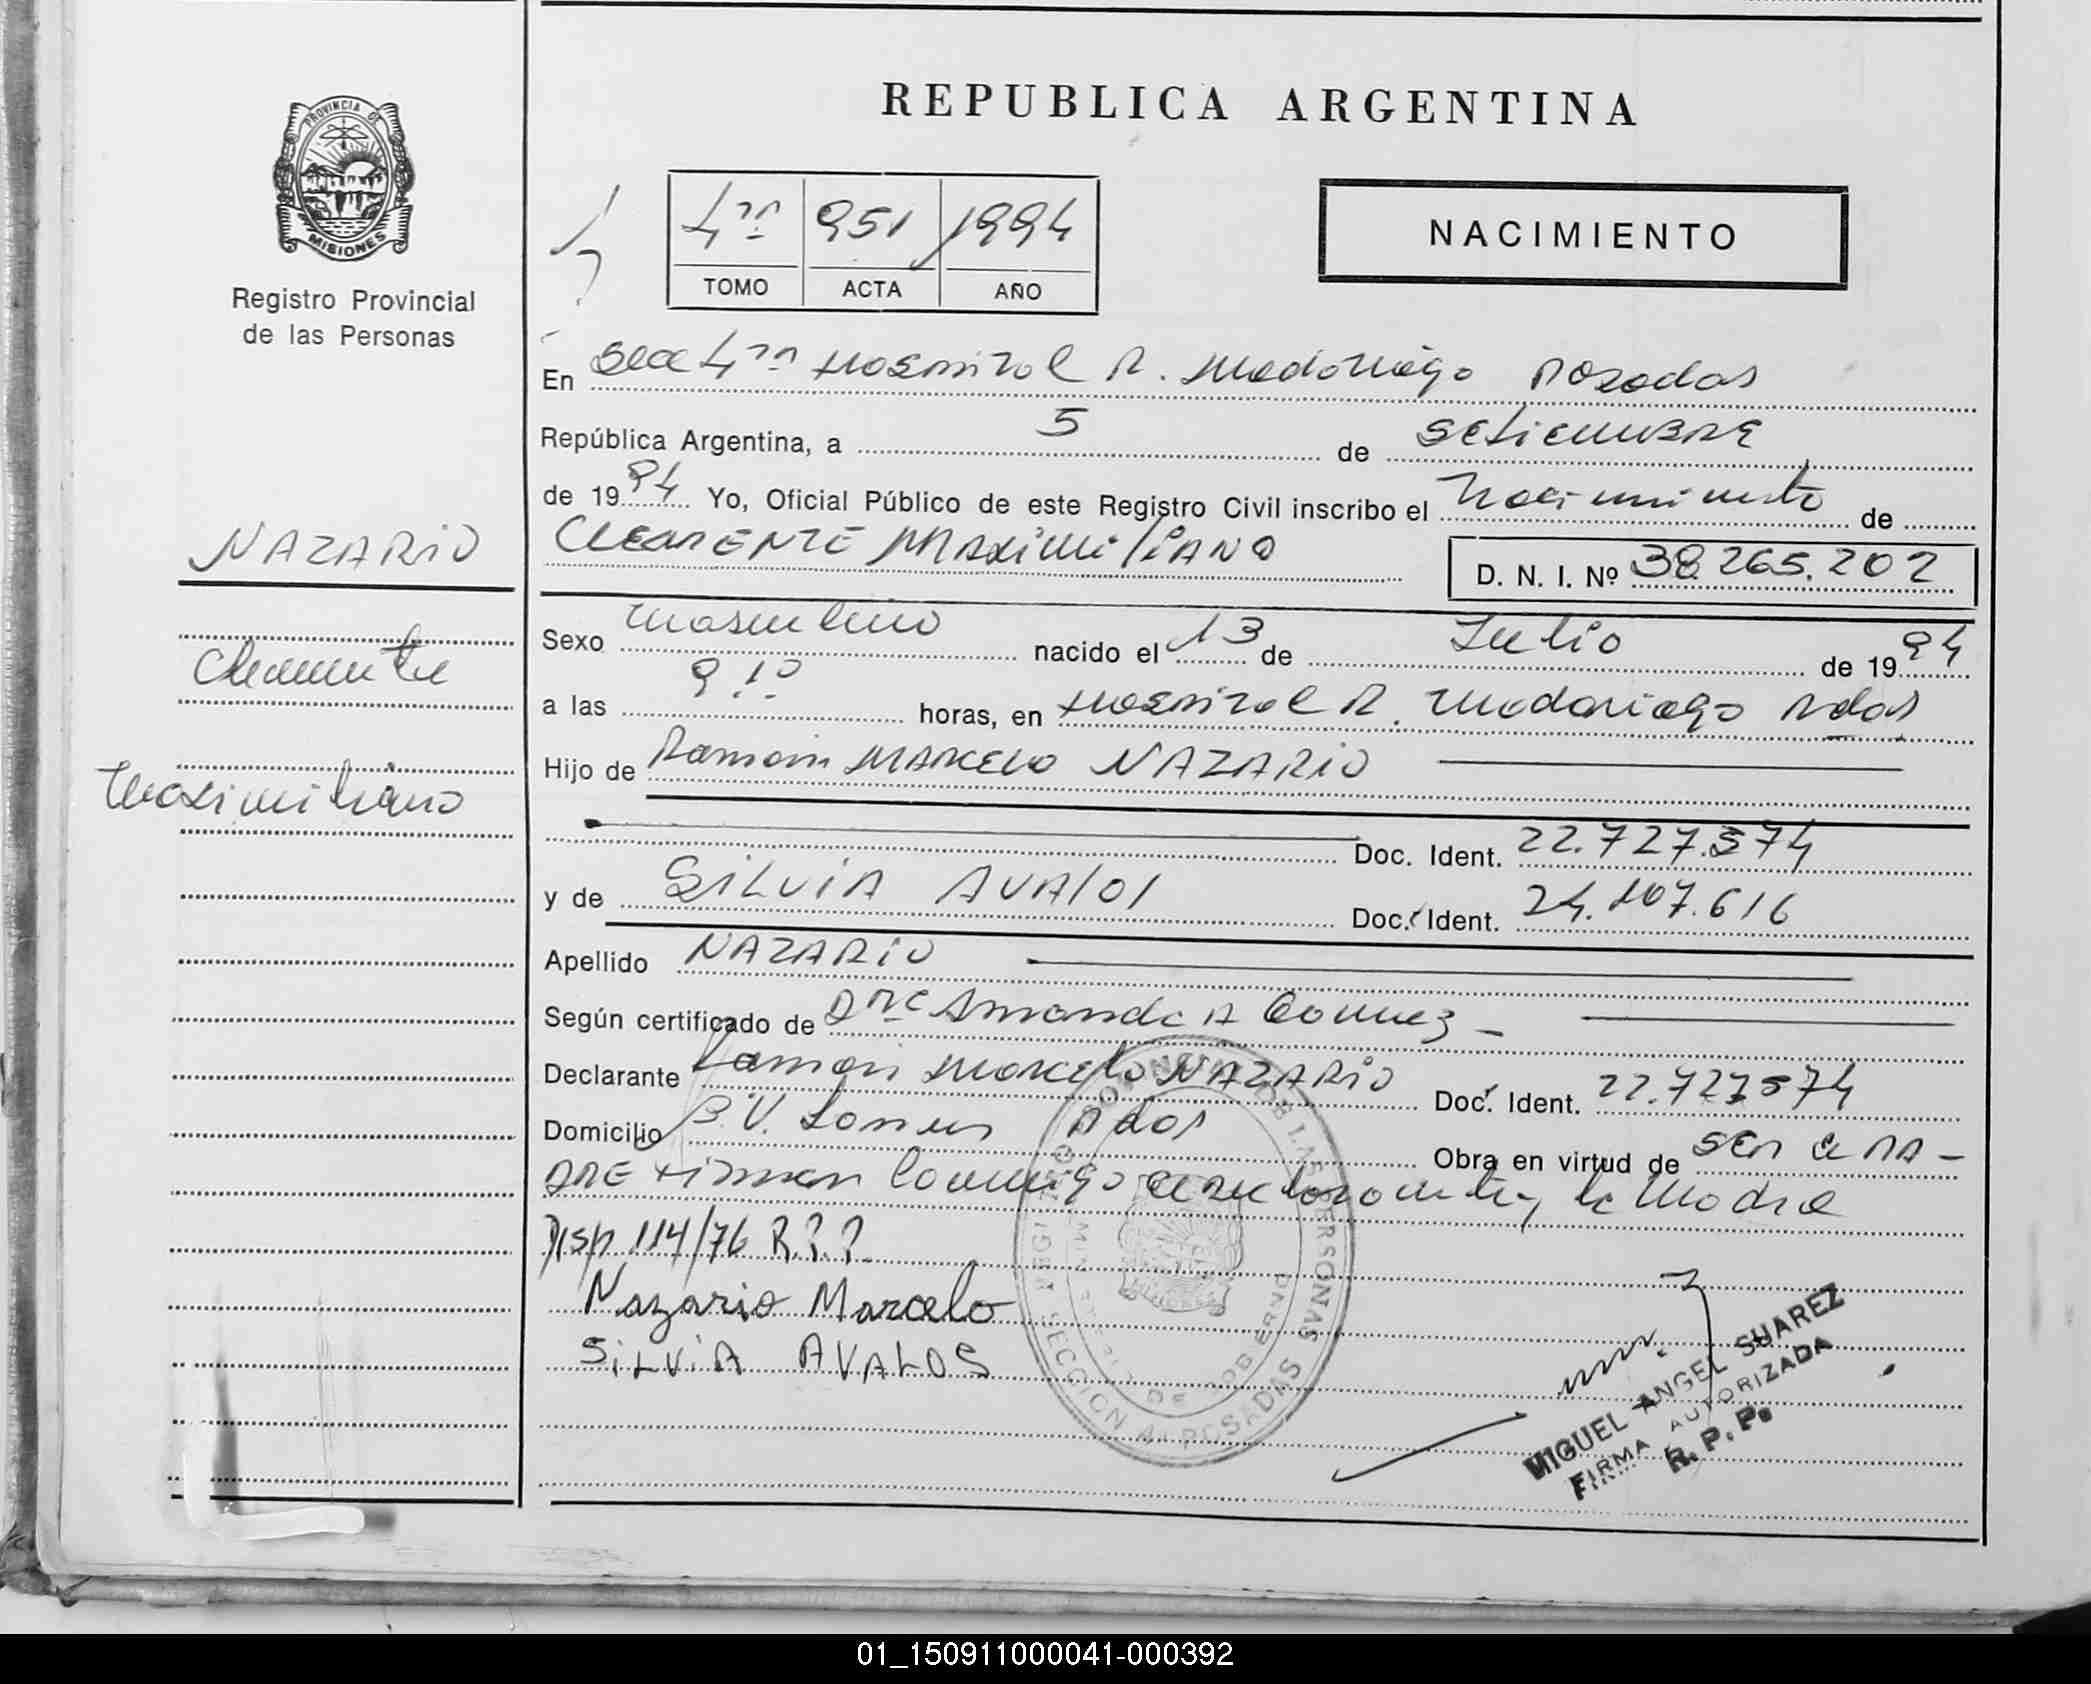 REPUBLICA ARGENTINA
PROVINCIA DE
MISIONES
Registro Provincial
de las Personas
4ta 951 1994
TOMO ACTA AÑO
NACIMIENTO
En Secc 4ta Hospital R. Madariaga Posadas
República Argentina, a 5 de Setiembre
de 1994 Yo, Oficial Público de este Registro Civil inscribo el Nacimiento de
Clemente Maximiliano
D. N. I. Nº 38.265.202
NAZARIO
Clemente
Maximiliano
Sexo Masculino nacido el 13 de Julio de 1994
a las 9.10 horas, en Hospital R. Madariaga Pdas
Hijo de Ramón Marcelo NAZARIO
Doc. Ident. 22.727.574
y de Silvia Avalos Doc. Ident. 24.107.616
Apellido NAZARIO
Según certificado de Amanda A Gomez
Declarante Ramon Marcelo NAZARIO Doc. Ident. 22.727574
Domicilio B.V. Pdas Obra en virtud de ser el pa-
dre firman conmigo el declarante y la Madre
Disp 114/76 R.P.P.
Nazario Marcelo
SiLViA AVALOS
SECCION 4ta POSADAS
MINISTERIO DE GOBIERNO
MIGUEL ANGEL SUAREZ
FIRMA AUTORIZADA
R. P. P.
01_150911000041-000392